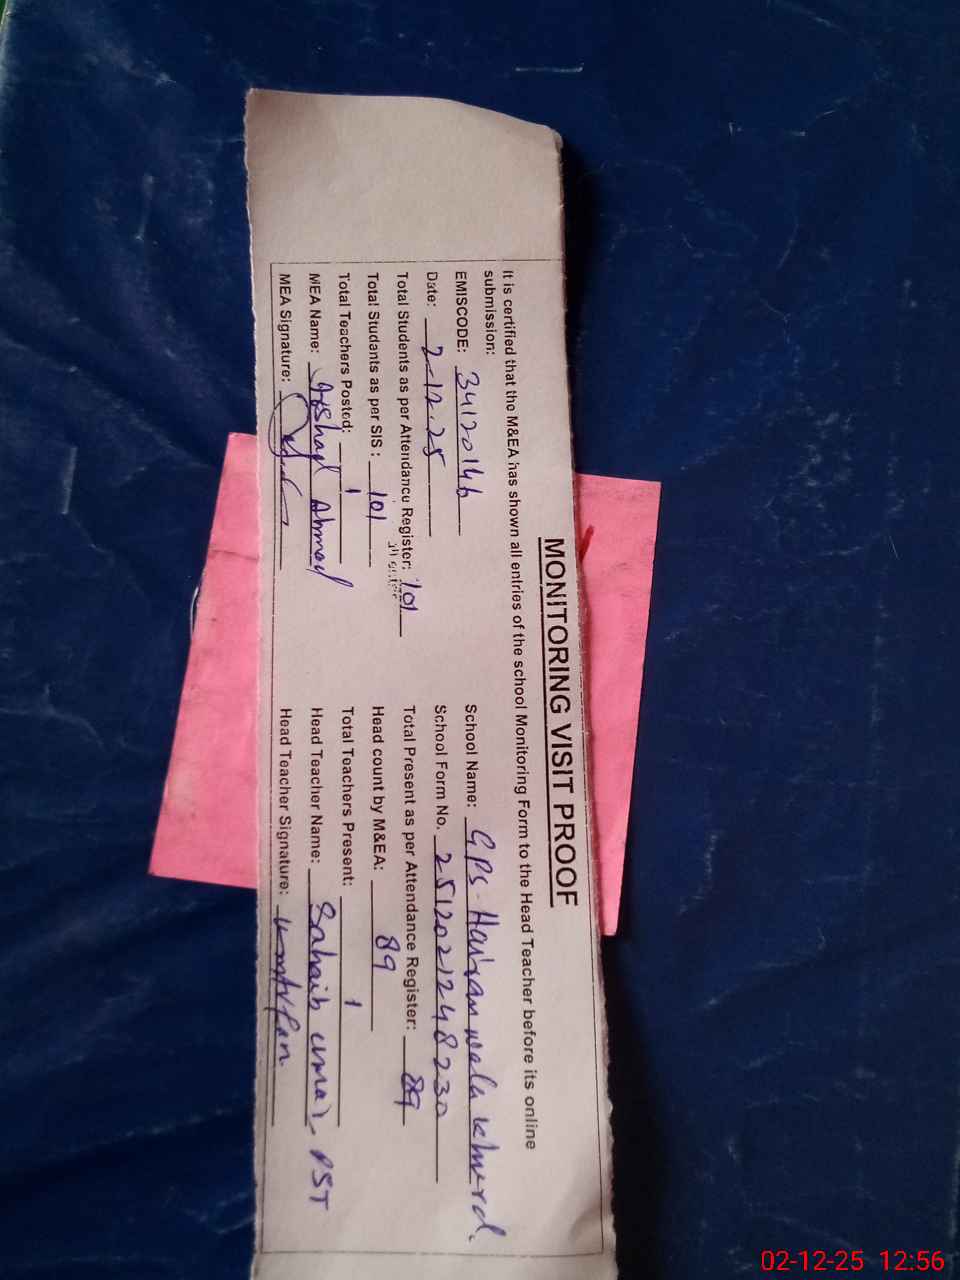 MONITORING VISIT PROOF
It is certified that the M&EA has shown all entries of the school Monitoring Form to the Head Teacher before its online
submission:
EMISCODE: 34120146
School Name: GPS Hairan wala Khurd.
Date: 2-12-25
School Form No. 2512021248230
Total Students as per Attendance Register: 101
Total Present as per Attendance Register: 89
Total Students as per SIS: 101
Head count by M&EA: 89
Total Teachers Posted: 1
Total Teachers Present: 1
MEA Name: Ahmad
Head Teacher Name: Sahaib umair PST
MEA Signature:
Head Teacher Signature:
02-12-25 12:56